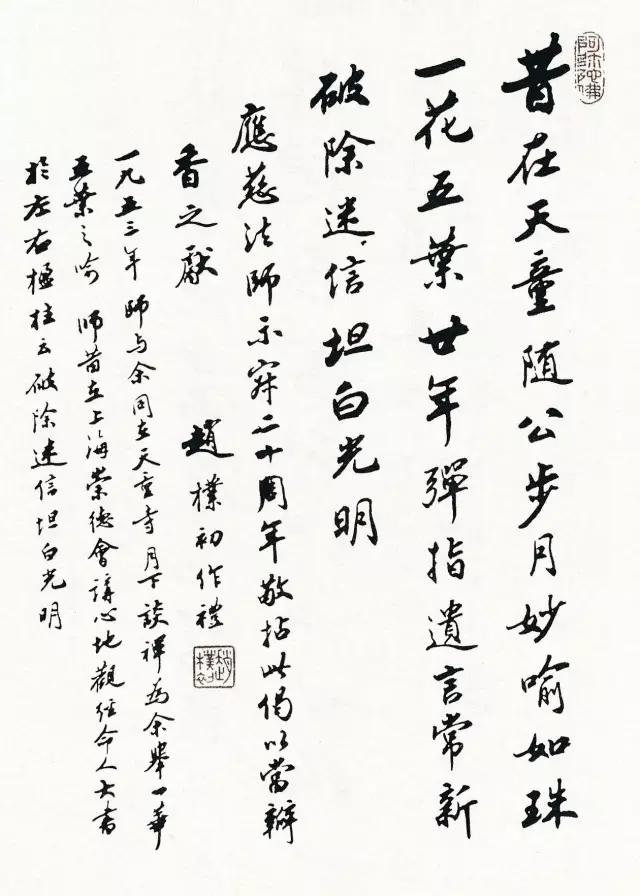 阿弥陀佛
昔在天童随公步月妙喻如珠
一花五葉廿年彈指遺言常新
破除迷信坦白光明
應慈法師示寂二十周年敬拈此偈以當瓣
香之獻
趙樸初作禮
趙樸初
一九五三年師与余同在天童寺月下談禅為余舉一華
五葉之喻師昔在上海崇德會講心地觀经命人大書
於左右楹柱云破除迷信坦白光明